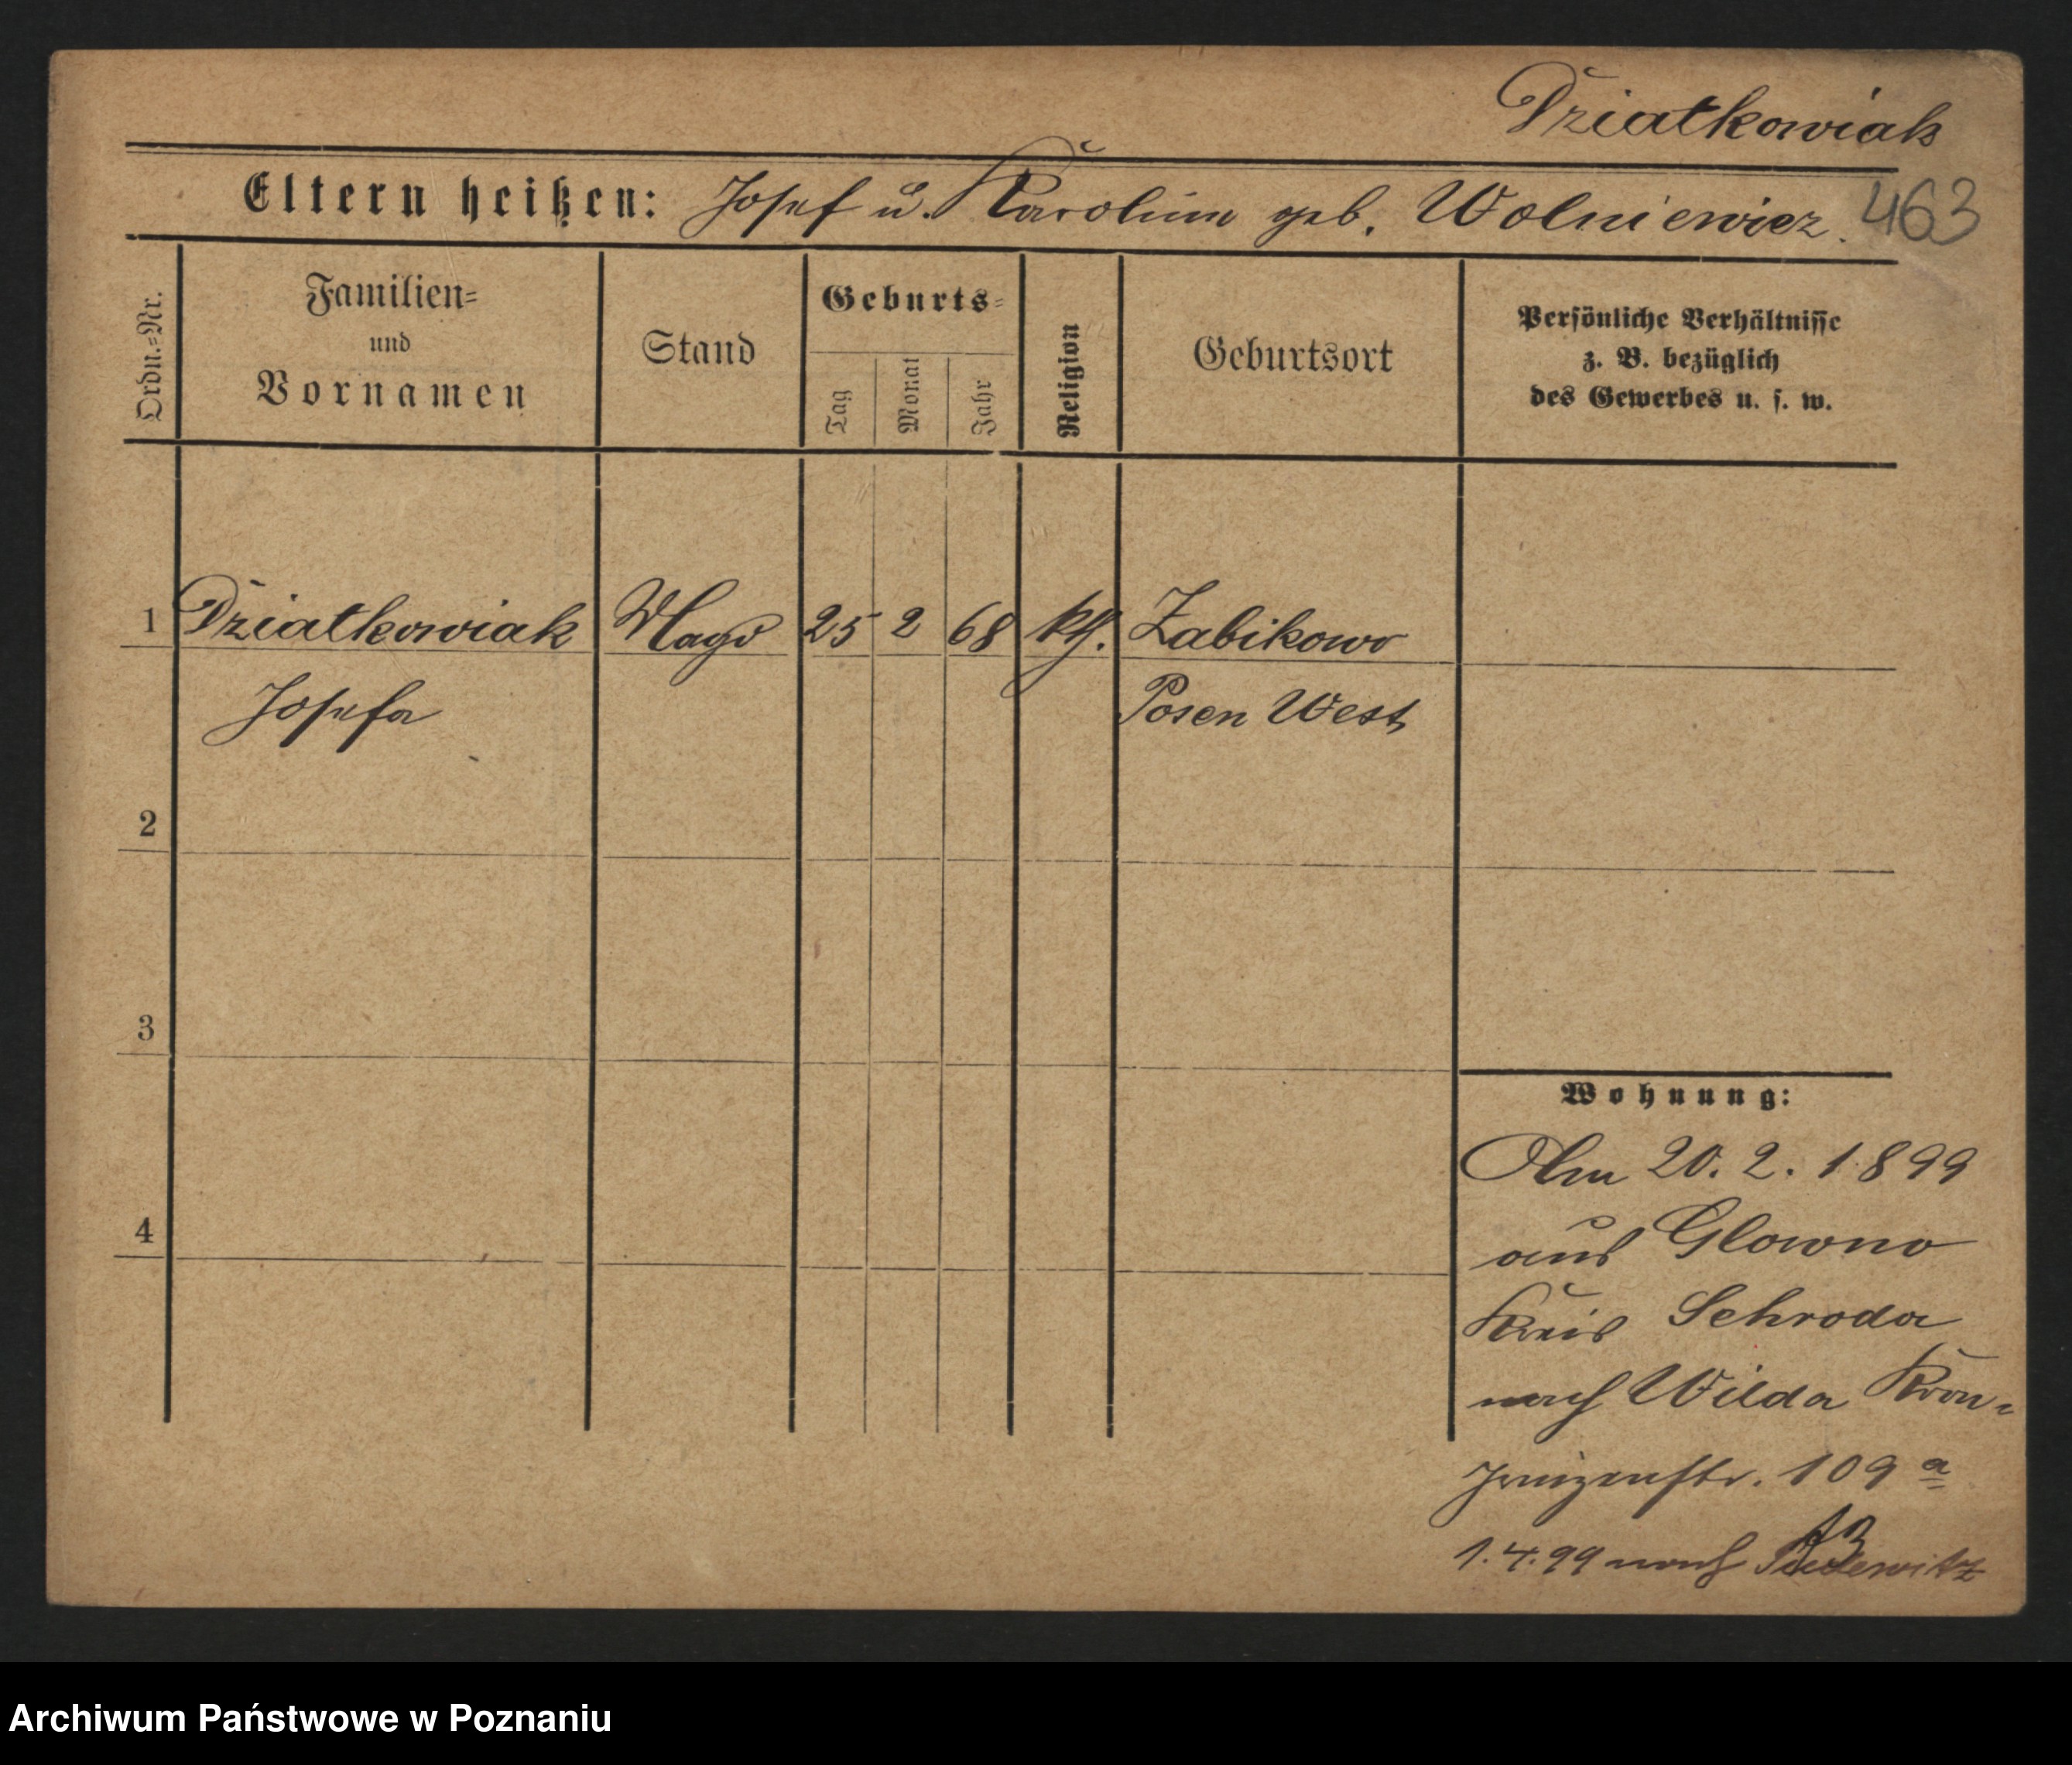 Dziatkowiak
Eltern heißen: Josef u. Karoline geb. Wolniewicz.
463
Ordn.-Nr.
Familien-
und
Vornamen
Stand
Geburts-
Tag
Monat
Jahr
Religion
Geburtsort
Persönliche Verhältnisse
z. B. bezüglich
des Gewerbes u. s. w.
1 Dziatkowiak Magd 25 2 68 kth. Zabikowo
Josefa Posen West
2
3
4
Wohnung:
Am 20. 2. 1899
aus Glowno
Kreis Schroda
nach Wilda Kron-
prinzenstr. 109 a
1. 4. 99 nach
Archiwum Państwowe w Poznaniu